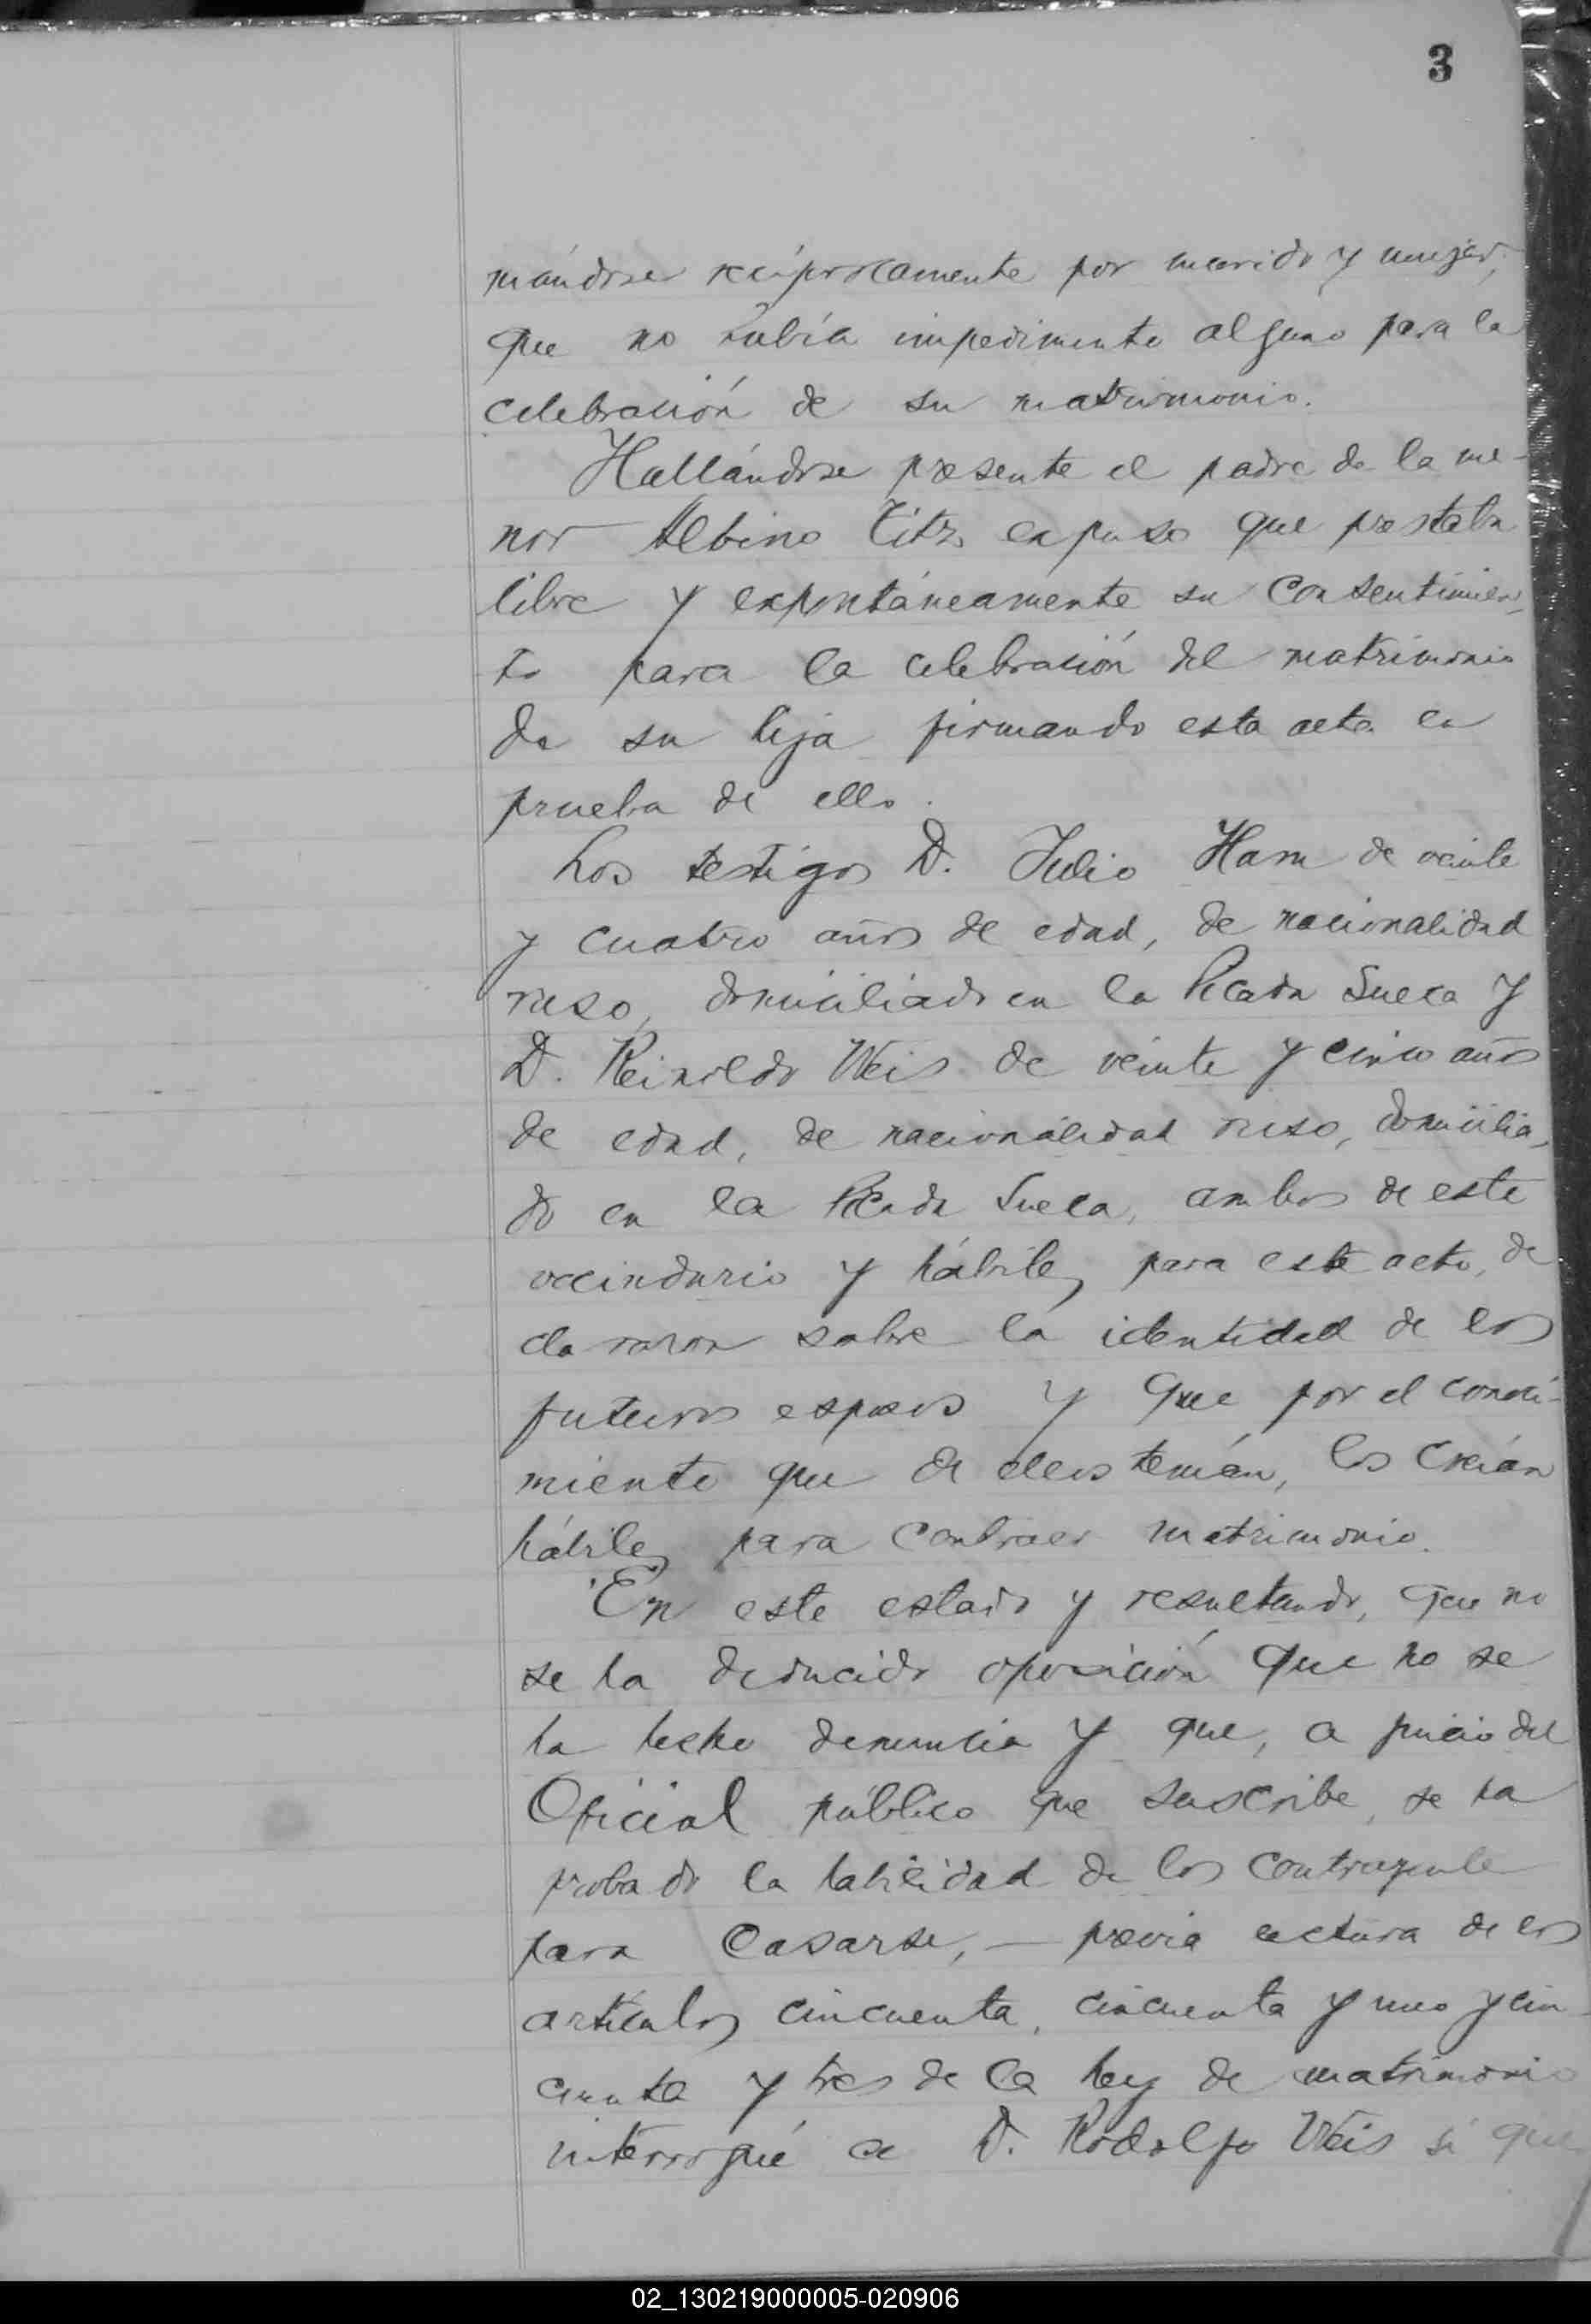 3
mándose recíprocamente por marido y mujer,
que no había impedimento alguno para la
celebración de su matrimonio.
Hallándose presente el padre de la me-
nor Albino Titz expuso que prestaba
libre y expontáneamente su consentimien-
to para la celebración del matrimonio
de su hija firmando esta acta en
prueba de ello.
Los testigos D. Julio Ham de veinte
y cuatro años de edad, de nacionalidad
ruso, domiciliado en la Picada Sueca y
D. Reinoldo Weis de veinte y cinco años
de edad, de nacionalidad ruso, domicilia-
do en la Picada Sueca, ambos de este
vecindario y hábiles para este acto, de
clararon sobre la identidad de los
futuros esposos y que por el conoci-
miento que de ellos tenían, los creían
hábiles para contraer matrimonio.
En este estado y resultando, que no
se ha deducido oposición que no se
ha hecho denuncia y que, a juicio del
Oficial público que suscribe, se ha
probado la habilidad de los contrayente
para casarse, — previa lectura de los
artículos cincuenta, cincuenta y uno y cin-
cuenta y tres de la ley de matrimonio
interrogué a D. Rodolfo Weis si que
02_130219000005-020906